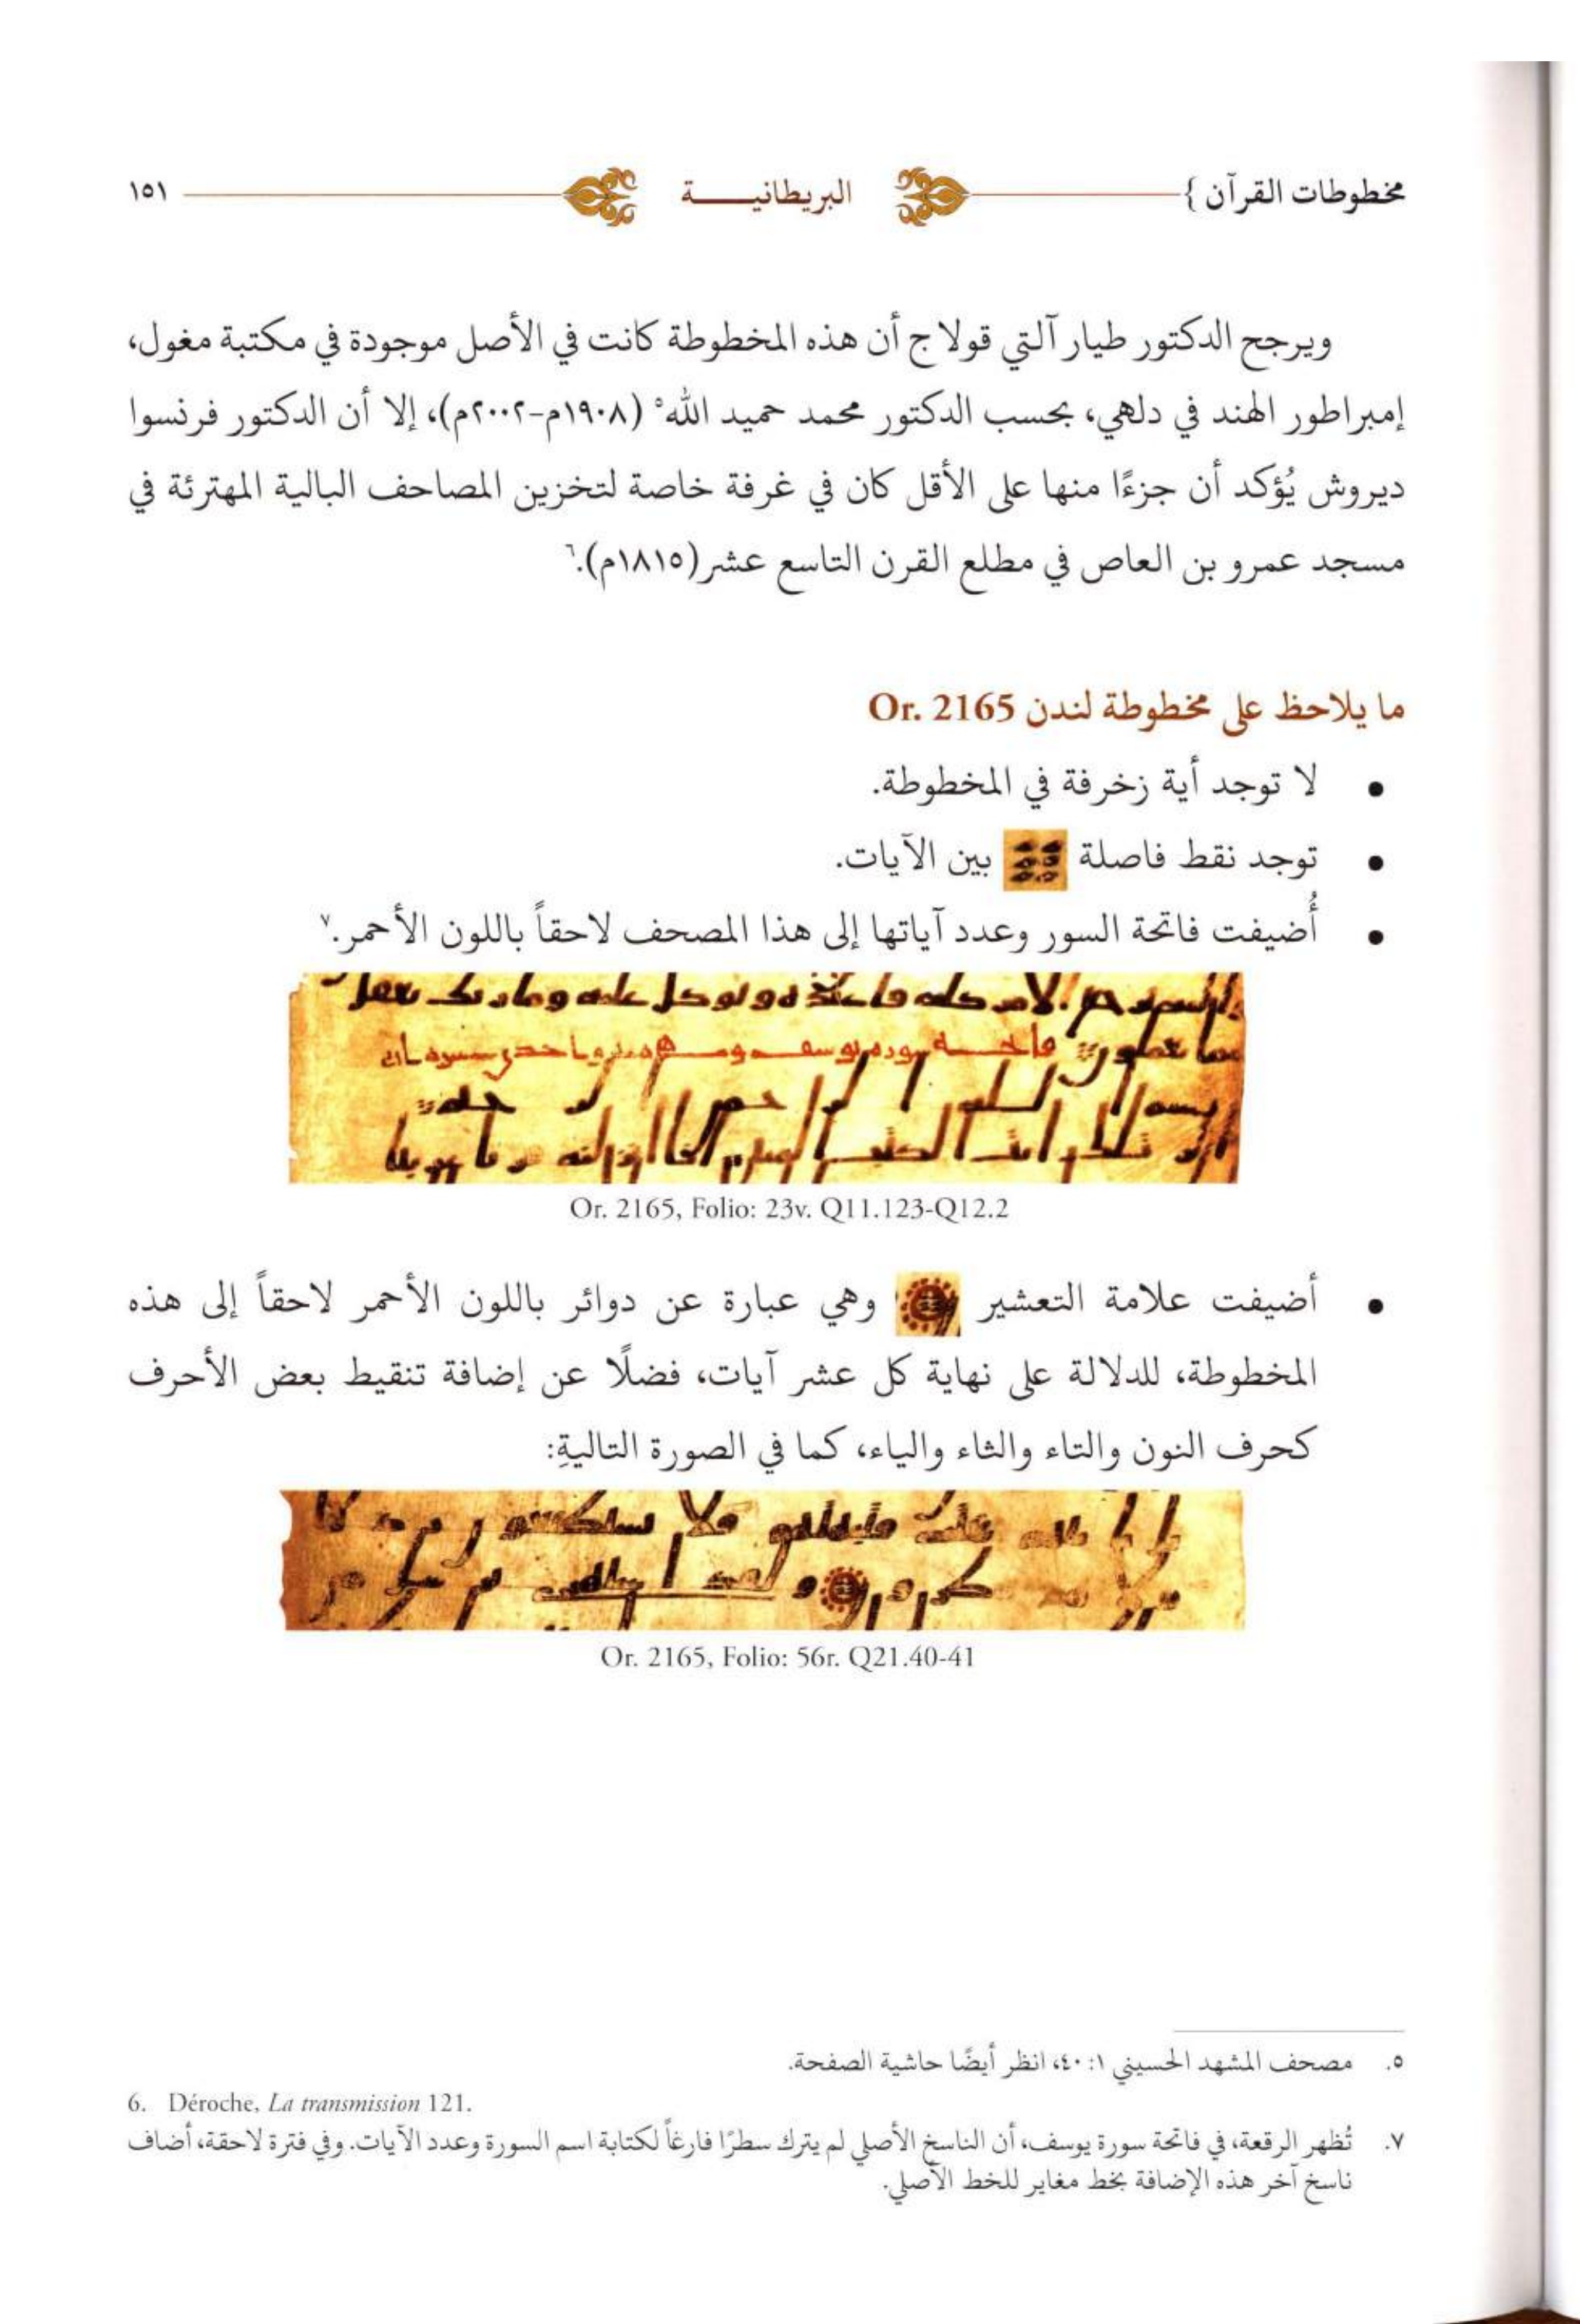 مخطوطات القرآن } البريطانيـــة ١٥١
ويرجح الدكتور طيار آلتي قولاج أن هذه المخطوطة كانت في الأصل موجودة في مكتبة مغول،
إمبراطور الهند في دلهي، بحسب الدكتور محمد حميد الله٥ (١٩٠٨م-٢٠٠٢م)، إلا أن الدكتور فرنسوا
ديروش يُؤكد أن جزءًا منها على الأقل كان في غرفة خاصة لتخزين المصاحف البالية المهترئة في
مسجد عمرو بن العاص في مطلع القرن التاسع عشر(١٨١٥م).٦
ما يلاحظ على مخطوطة لندن Or. 2165
• لا توجد أية زخرفة في المخطوطة.
• توجد نقط فاصلة بين الآيات.
• أُضيفت فاتحة السور وعدد آياتها إلى هذا المصحف لاحقاً باللون الأحمر.٧
Or. 2165, Folio: 23v. Q11.123-Q12.2
• أضيفت علامة التعشير وهي عبارة عن دوائر باللون الأحمر لاحقاً إلى هذه
المخطوطة، للدلالة على نهاية كل عشر آيات، فضلًا عن إضافة تنقيط بعض الأحرف
كحرف النون والتاء والثاء والياء، كما في الصورة التالية:
Or. 2165, Folio: 56r. Q21.40-41
٥. مصحف المشهد الحسيني ١: ٤٠، انظر أيضًا حاشية الصفحة.
6. Déroche, La transmission 121.
٧. تُظهر الرقعة، في فاتحة سورة يوسف، أن الناسخ الأصلي لم يترك سطرًا فارغاً لكتابة اسم السورة وعدد الآيات. وفي فترة لاحقة، أضاف
ناسخ آخر هذه الإضافة بخط مغاير للخط الأصلي.